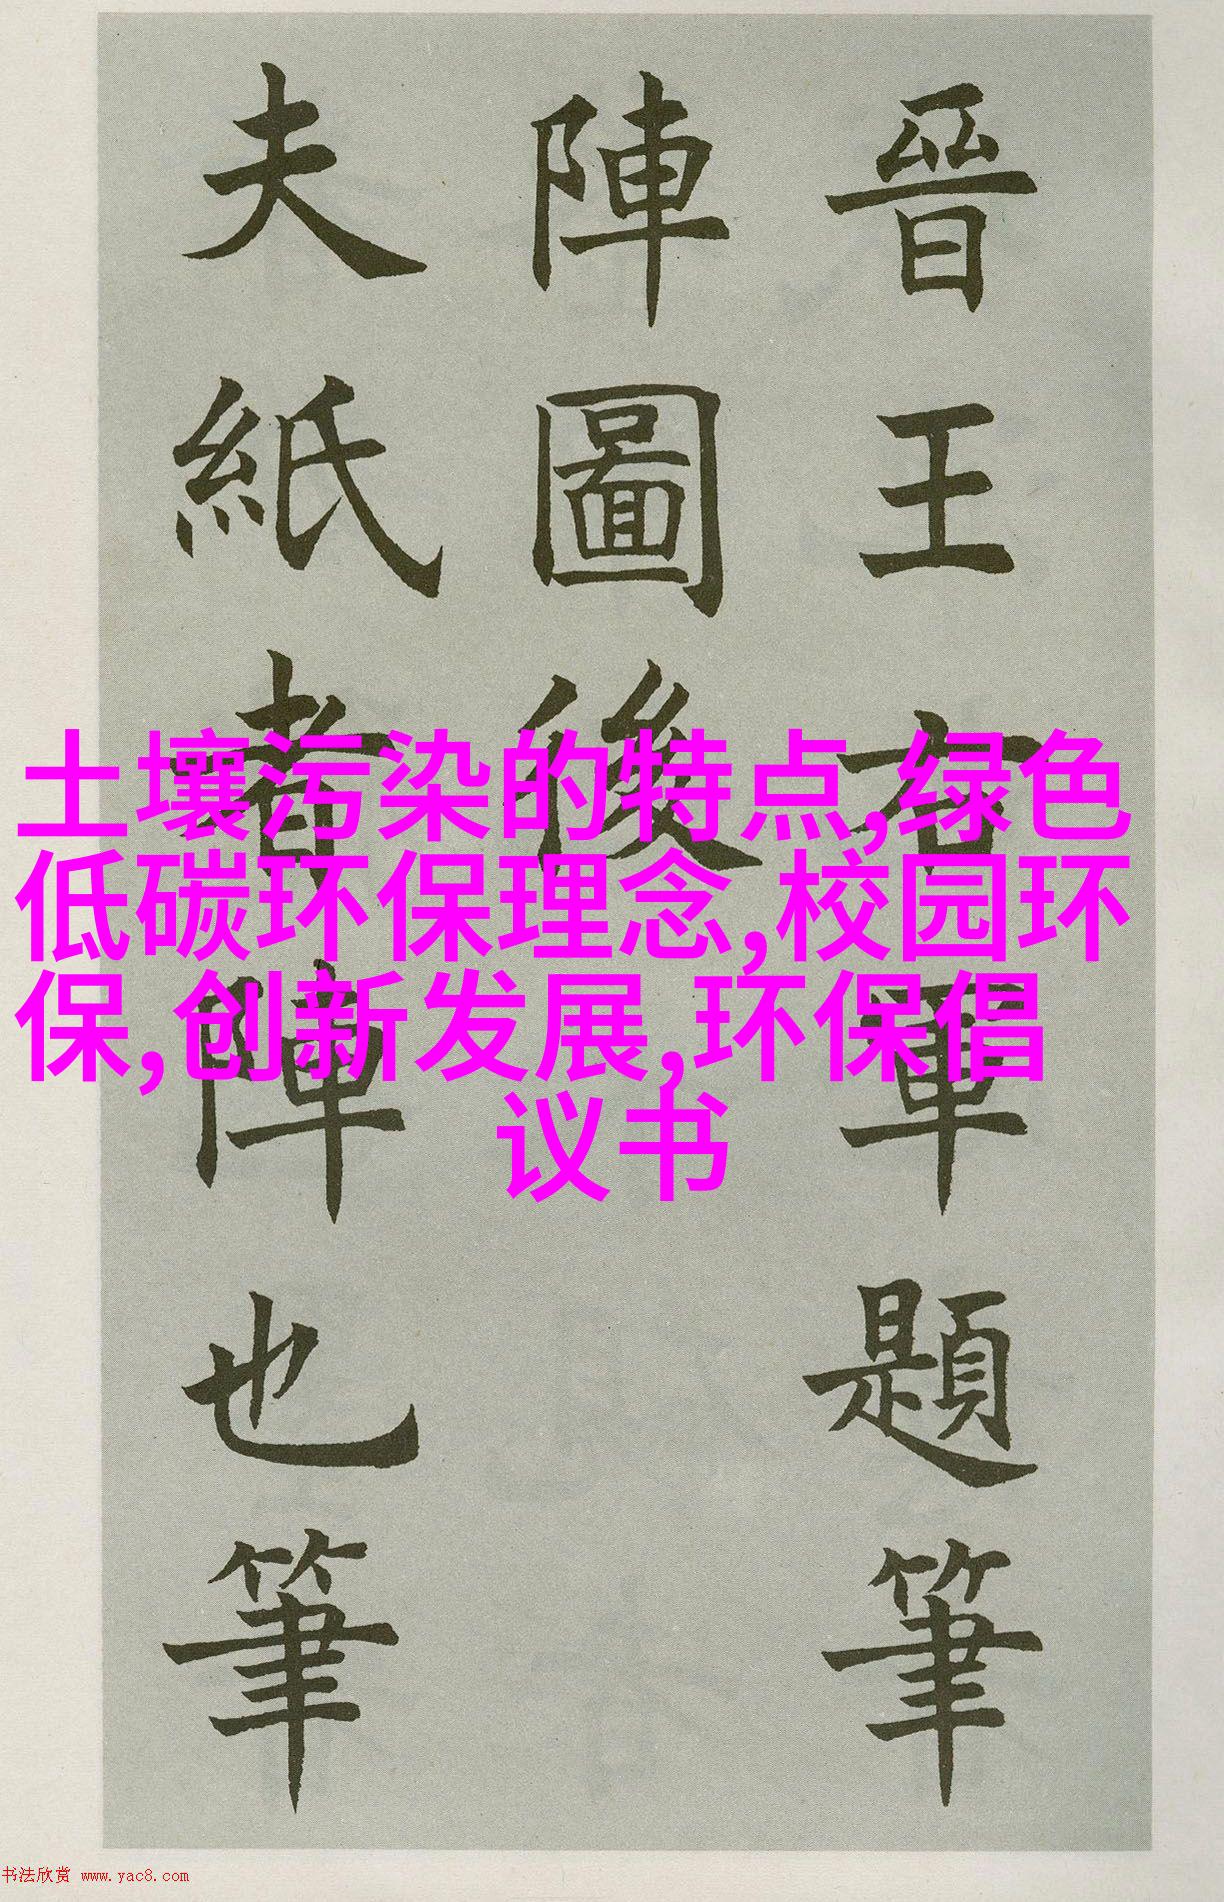 晉王右軍題筆
陣圖後
夫紙者陣也筆
土壤污染的特点,绿色
低碳环保理念,校园环
保,创新发展,环保倡
议书
书法欣赏 www.yac8.com